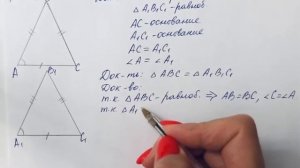 △ A₁B₁C₁ - равноб
AC - основание
A₁C₁ - основание
AC = A₁C₁
∠A = ∠A₁
Док-ть: △ABC = △A₁B₁C₁
Док-во:
т.к. △ABC - равноб. ⇒ AB=BC, ∠C=∠A
т.к. △A₁
A
C
B₁
A₁
C₁